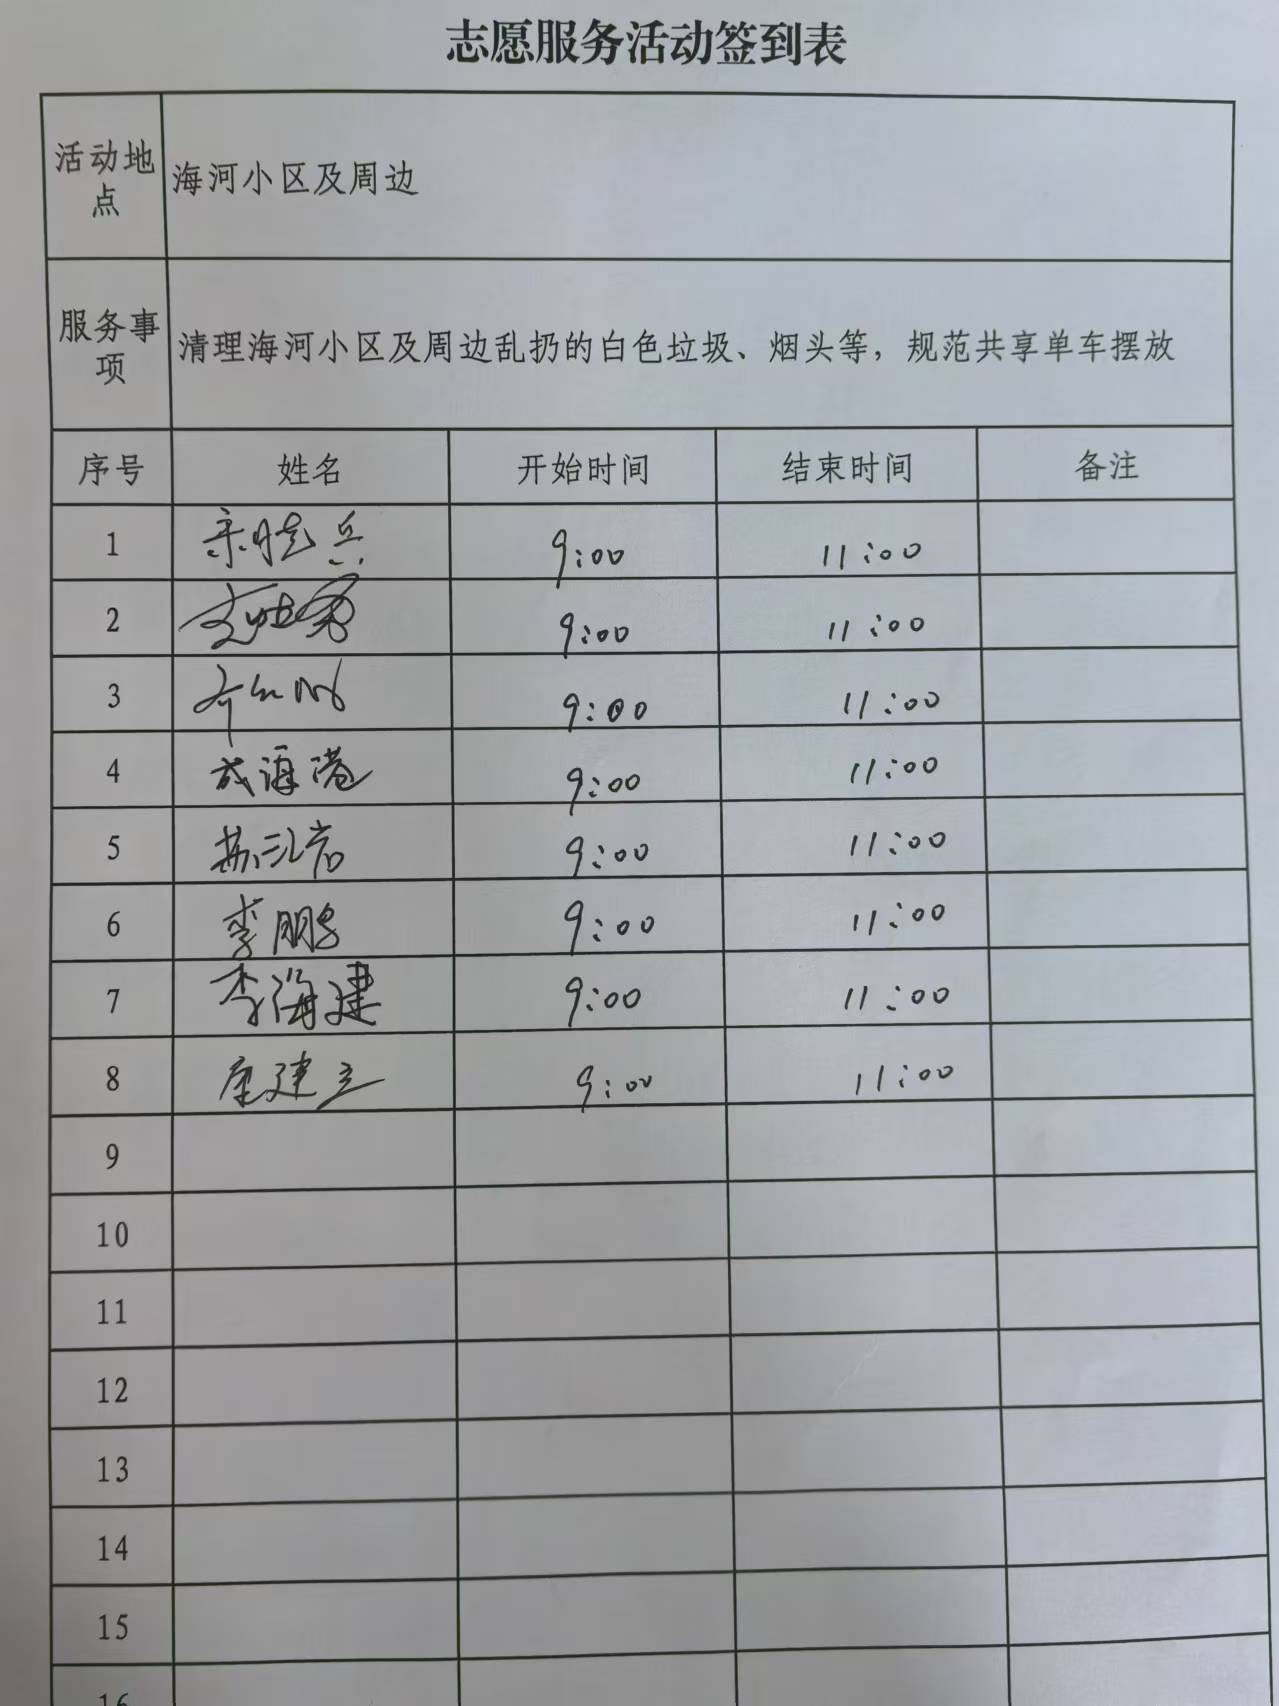 志愿服务活动签到表
活动地点 海河小区及周边
服务事项 清理海河小区及周边乱扔的白色垃圾、烟头等，规范共享单车摆放
序号 姓名 开始时间 结束时间 备注
1 9:00 11:00
2 9:00 11:00
3 9:00 11:00
4 成海港 9:00 11:00
5 9:00 11:00
6 李鹏 9:00 11:00
7 李海建 9:00 11:00
8 康建立 9:00 11:00
9
10
11
12
13
14
15
16